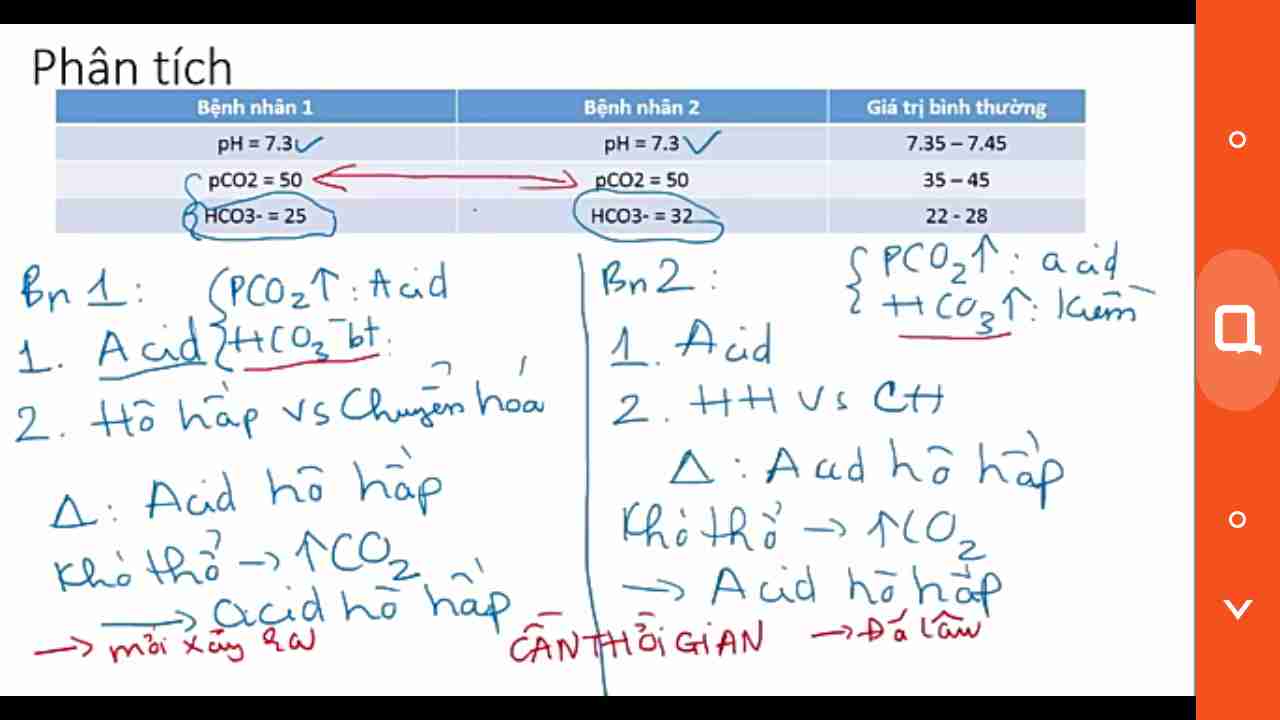 Phân tích
Bệnh nhân 1 Bệnh nhân 2 Giá trị bình thường
pH = 7.3 pH = 7.3 7.35 – 7.45
pCO2 = 50 pCO2 = 50 35 – 45
HCO3- = 25 HCO3- = 32 22 - 28
Bn 1: PCO₂↑: Acid
1. Acid HCO₃⁻ bt.
2. Hô hấp vs Chuyển hóa
Δ: Acid hô hấp
Khó thở → ↑CO₂
→ acid hô hấp
→ mới xảy ra
Bn 2: PCO₂↑: acid
HCO₃↑: kiềm
1. Acid
2. HH vs CH
Δ: Acid hô hấp
Khó thở → ↑CO₂
→ Acid hô hấp
CẦN THỜI GIAN → Đã lâu